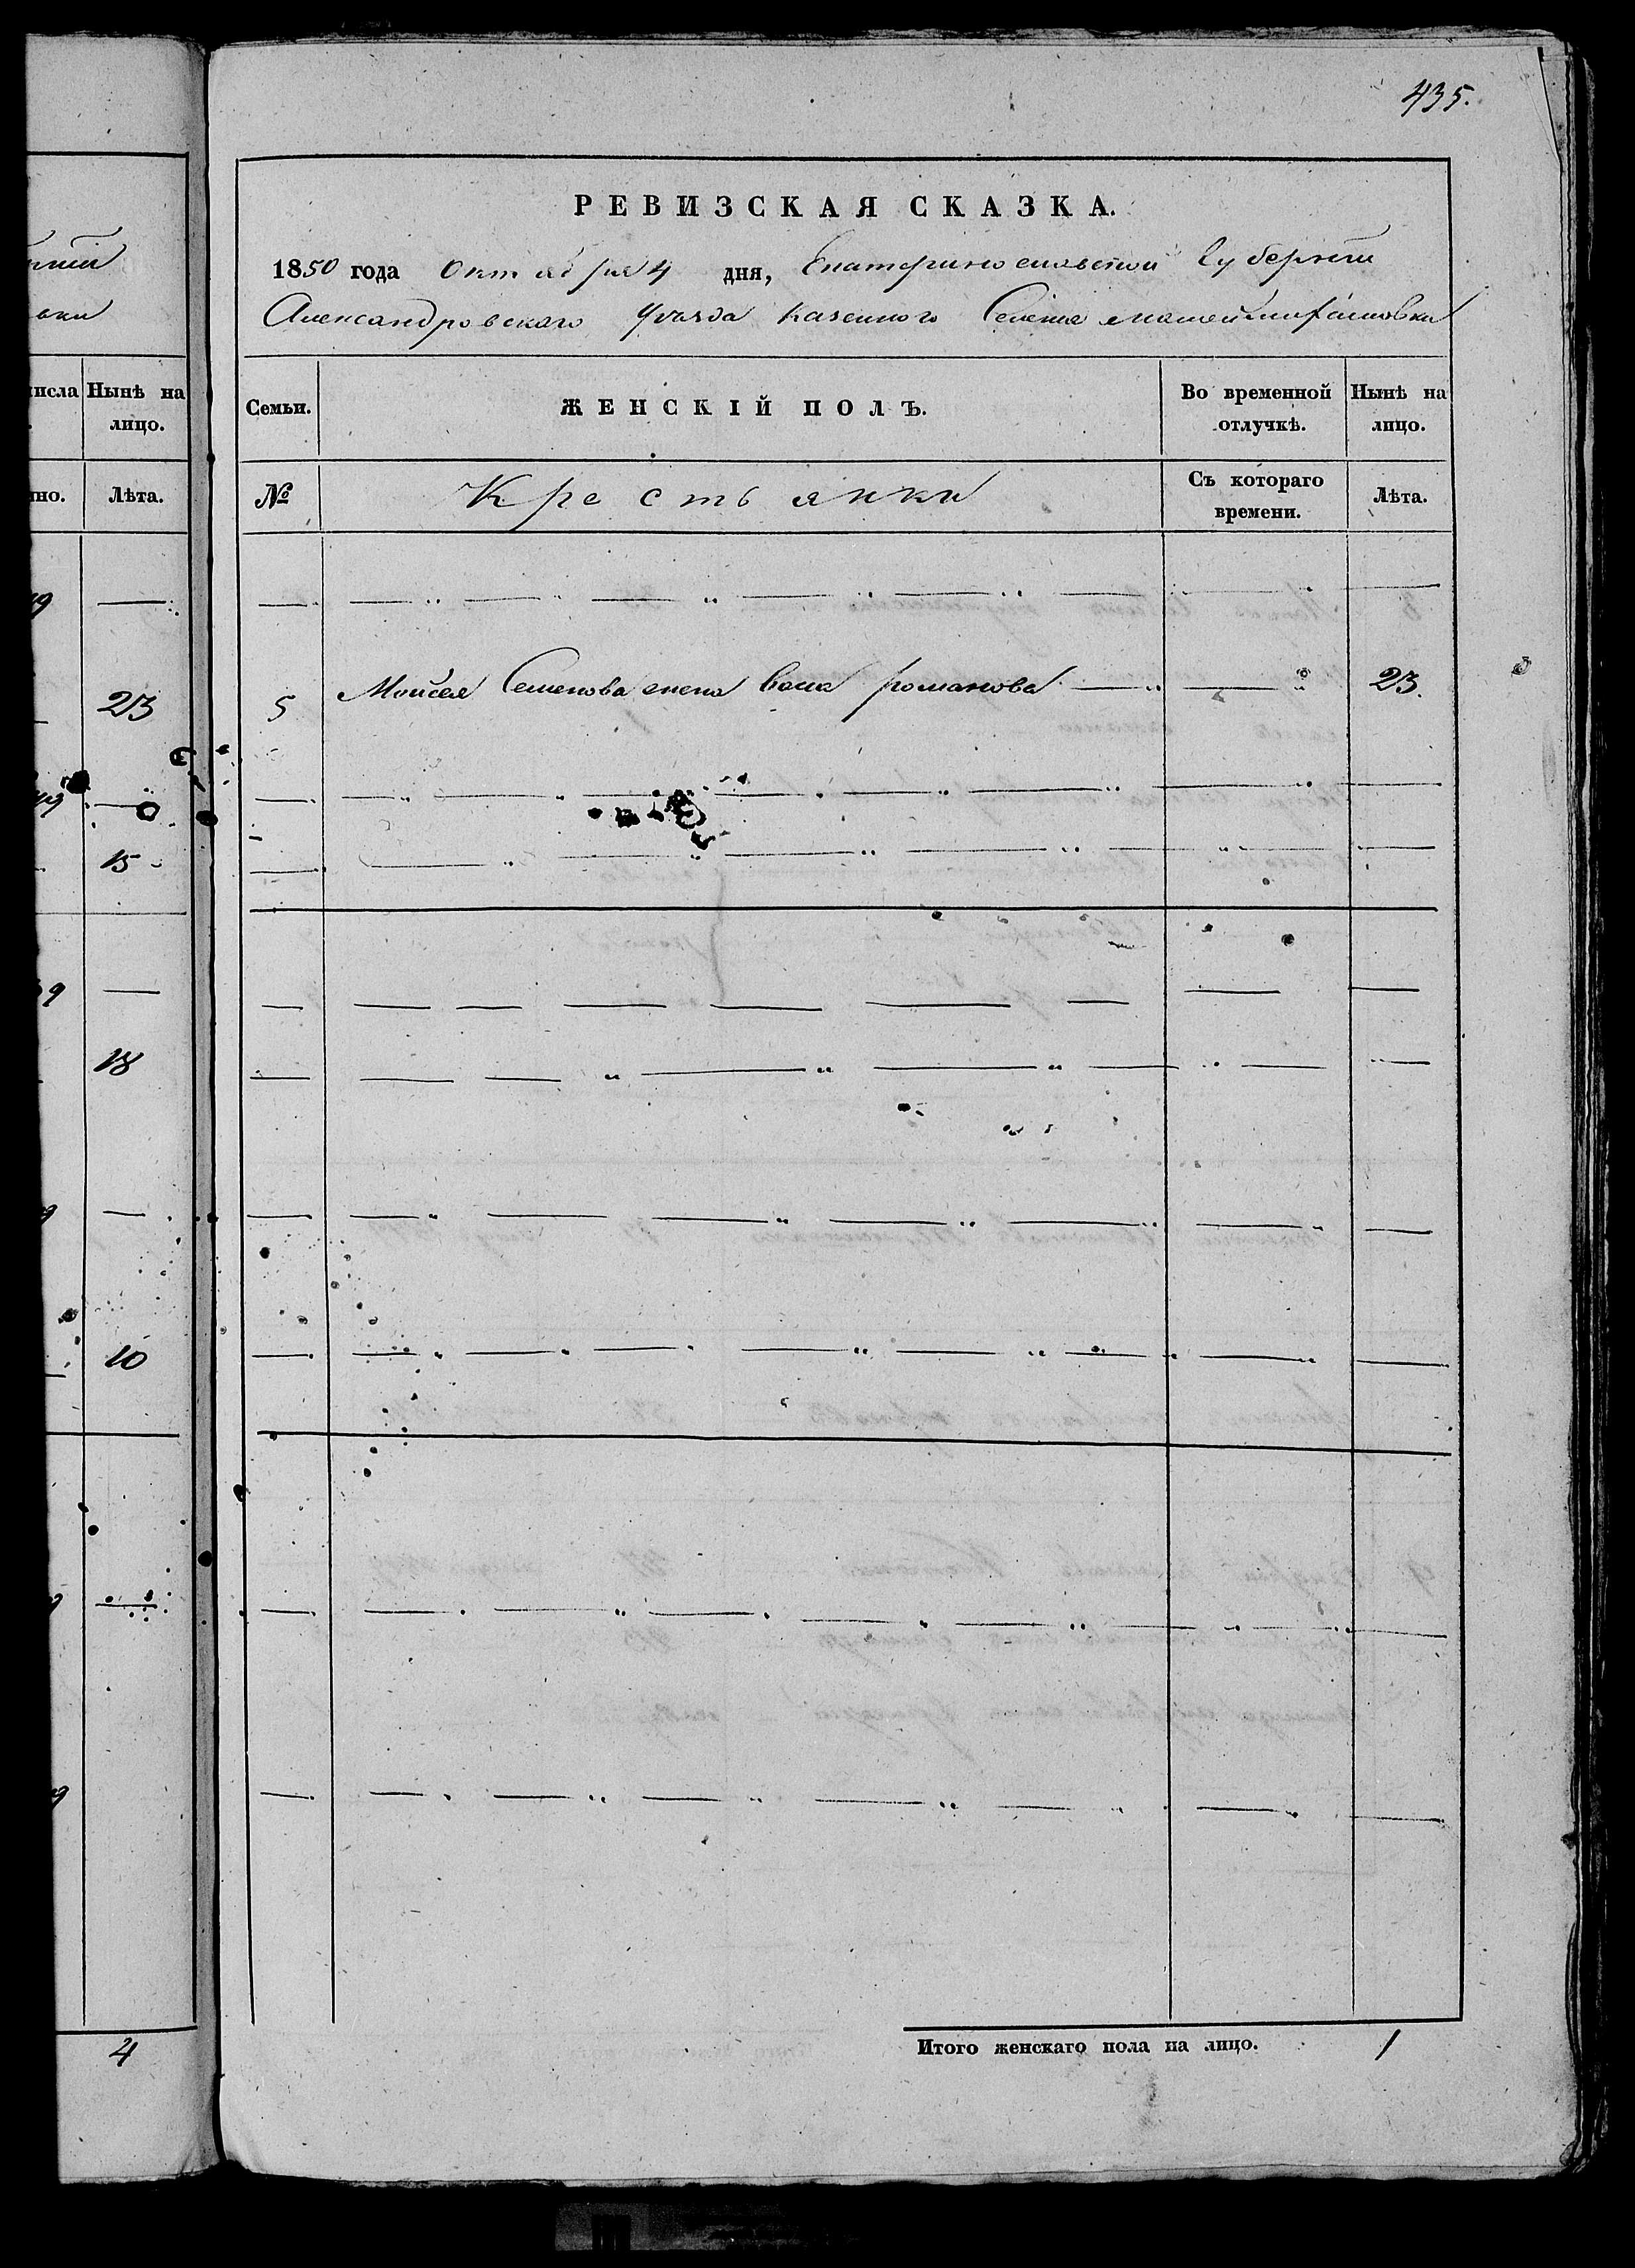 435.
РЕВИЗСКАЯ СКАЗКА.
1850 года Октября 4 дня, Екатеринославской Губернии
Александровскаго Уезда казенного Селения
нии
вки
исла
Нынѣ на лицо.
Семьи.
ЖЕНСКІЙ ПОЛЪ.
Во временной отлучкѣ.
Нынѣ на лицо.
но.
Лѣта.
№
Крестьянки
Съ котораго времени.
Лѣта.
9
23
5 Моисея Семенова жена романова 23.
49
15
9
18
9
10
9
9
4
Итого женскаго пола на лицо. 1